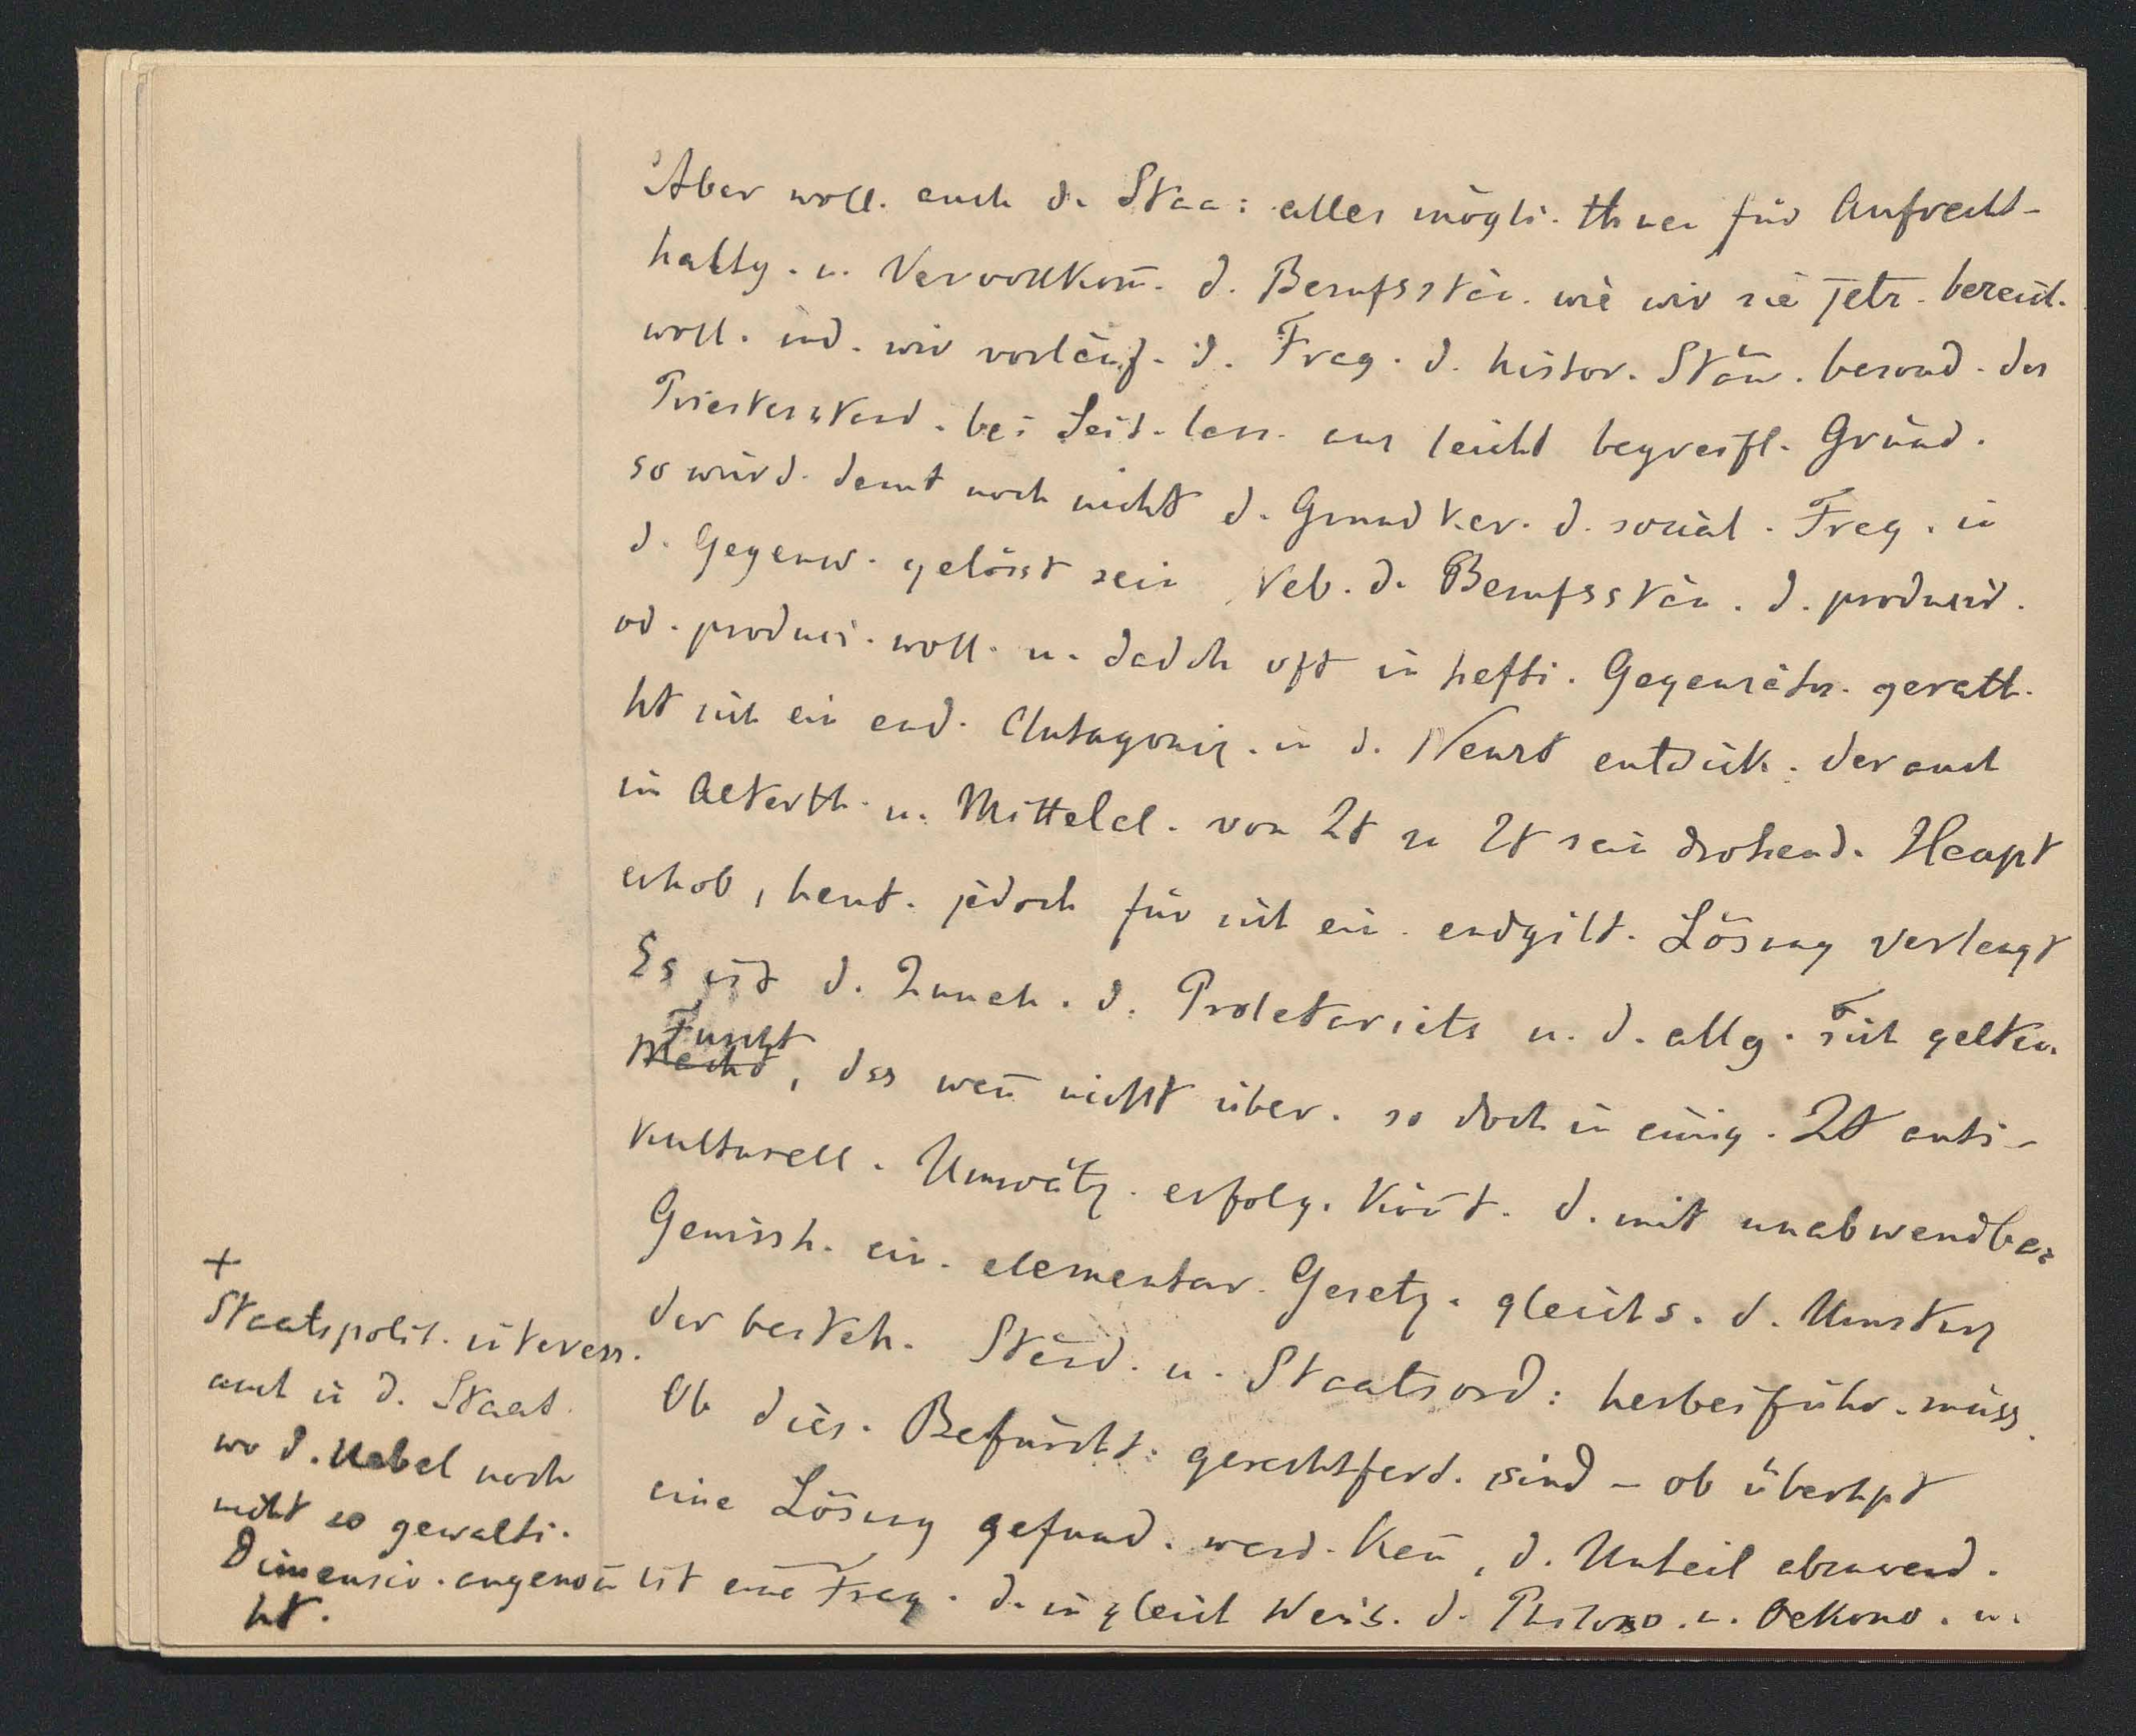 Aber woll. auch d. Staa: alles mögli. thuen für Aufrecht-
haltg. u. Vervollkom̄. d. Berufsstän. wie wir sie jetz. bereich.
woll. ind. wir vorläuf. d. Frag. d. histor. Stän. besond. des
Priesterstand. bei Seit. lass. aus leicht begreifl. Gründ.
so würd. damt noch nicht d. Grundker. d. social. Frag. in
d. Gegenw. gelösst sein Neb. d. Berufsstän. d. producir.
od. produci. woll. u. dadch oft in hefti. Gegensätz. gerath.
ht sich ein and. Antagonis. in d. Neuzt entwick. der auch
im Alterth. u. Mittelal. von Zt zu Zt sein drohend. Haupt
erhob, heut. jedoch für sich ein. endgilt. Lösung verlangt
Es ist d. Zuneh. d. Proletariats u. d. allg. sich gelten.
Furcht
Macht, dss wen̄ nicht über. so doch in einig. Zt anti-
kulturell. Umwälz. erfolg. kön̄t. d. mit unabwendba.
Gewissh. ein. elementar. Gesetz. gleichs. d. Umsturz
der besteh. Ständ. u. Staatsord: herbeiführ. müss.
Ob dies. Befürcht: gerechtferd. sind – ob überhpt
eine Lösung gefund. werd. kan̄, d. Unheil abzuwend.
ist eine Frag. d. in gleich Weis. d. Philoso. u. Oekono. u.
+
Staatspolit. interess.
auch in d. Staat.
wo d. Uebel noch
nicht so gewalti.
Dimensio. angenom̄
ht.